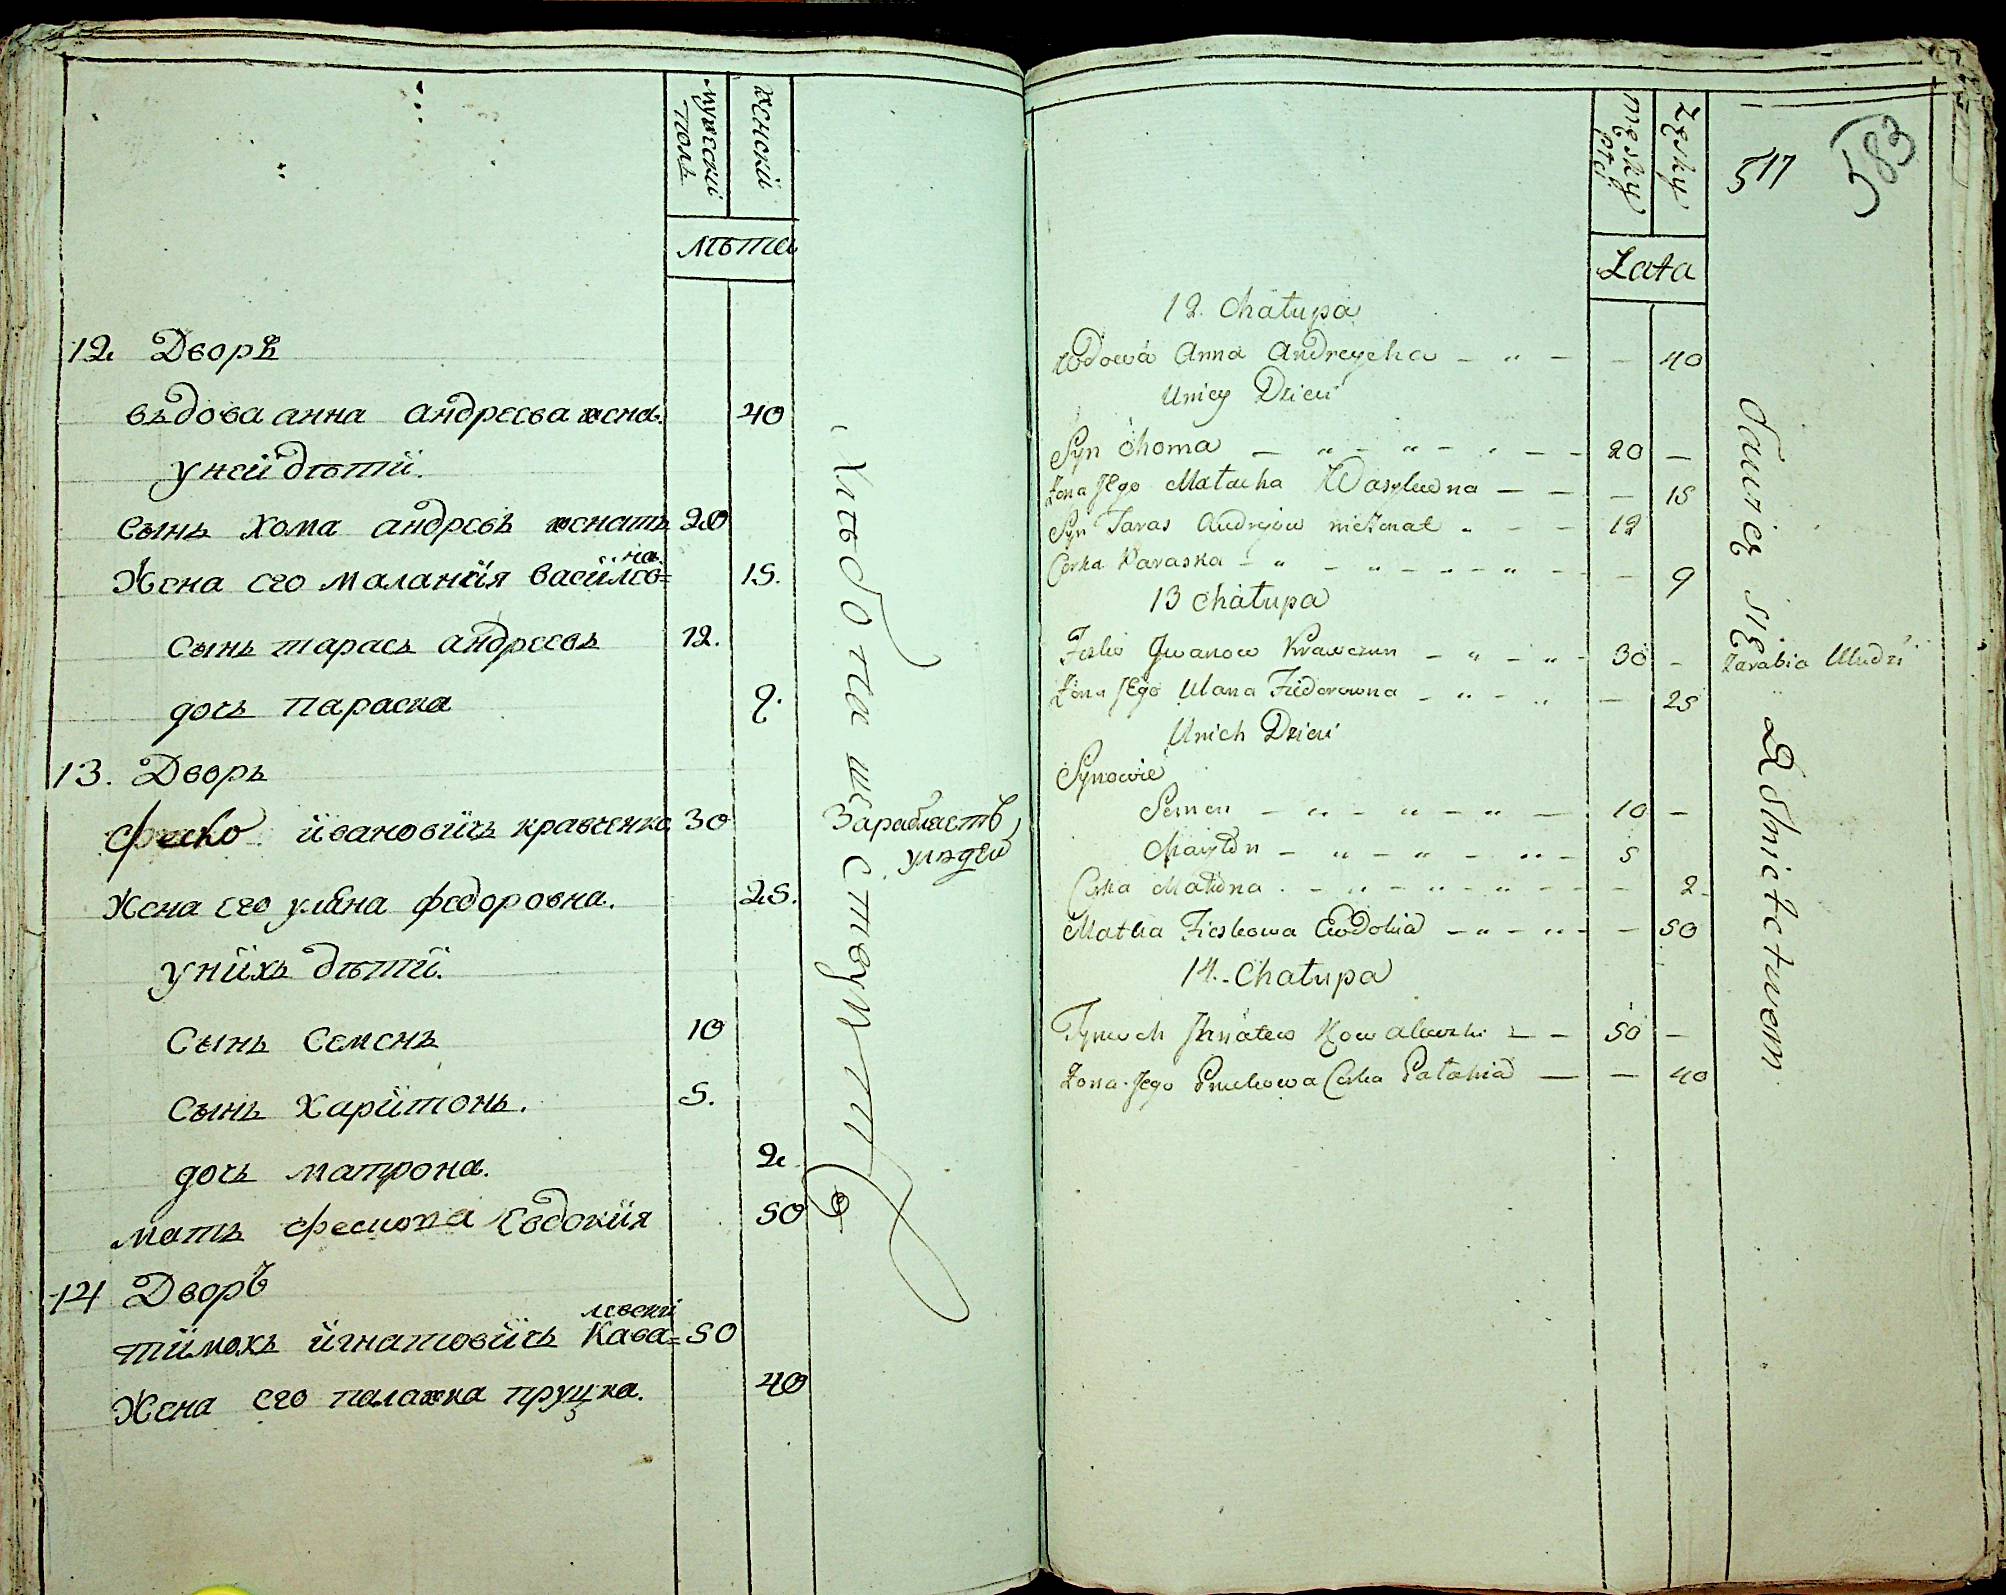 мужескій полъ
женскій
лѣта
12 Дворъ
вьдова анна андреева жена. 40
у ней дѣтй.
сынь хома андреевъ женатъ 20
Жена его маланйя васйлев=на. 15.
сынь тарась андреевь 12.
дочь параска 9.
13. Дворь
феско йвановйчь кравченко 30
Жена его уляна федоровна. 25.
у нйхь дѣтй.
Сынь Семень 10
Сынь Харйтонь. 5.
дочь матрона. 2
мать фескова Евдокйя 50
14 Дворъ
тймохь йгнатовйчь Кова=левскй 50
Жена его палажка пруцка. 40
Хлѣбопашествуютъ
Зарабляетъ
улюдей
męsky płci
Zęsky
517
583
Lata
12. Chałupa
Wdowa Anna Andreycha 40
Uniey Dzieci
Syn Choma 20
Zona Jego Małacha Wasylewna 15
Syn Taras Andrejow nieżonat 12
Corka Paraska 9
13 Chałupa
Fesko Jwanow Krawczun 30
Zona Jego Ulana Fiedorowna 25
Unich Dzieci
Synowie
Semen 10
Charyton 5
Corka Matrona 2
Matka Fieskowa Ewdokia 50
14. Chałupa
Tymoch Jhnatow Kowalewski 50
Zona Jego Pruckowa Corka Pałahia 40
Bawią się Rolnictwem
Zarabia Uludzi